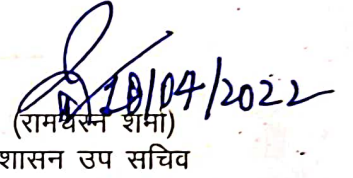 18/04/2022
(रामधरन शर्मा)
शासन उप सचिव